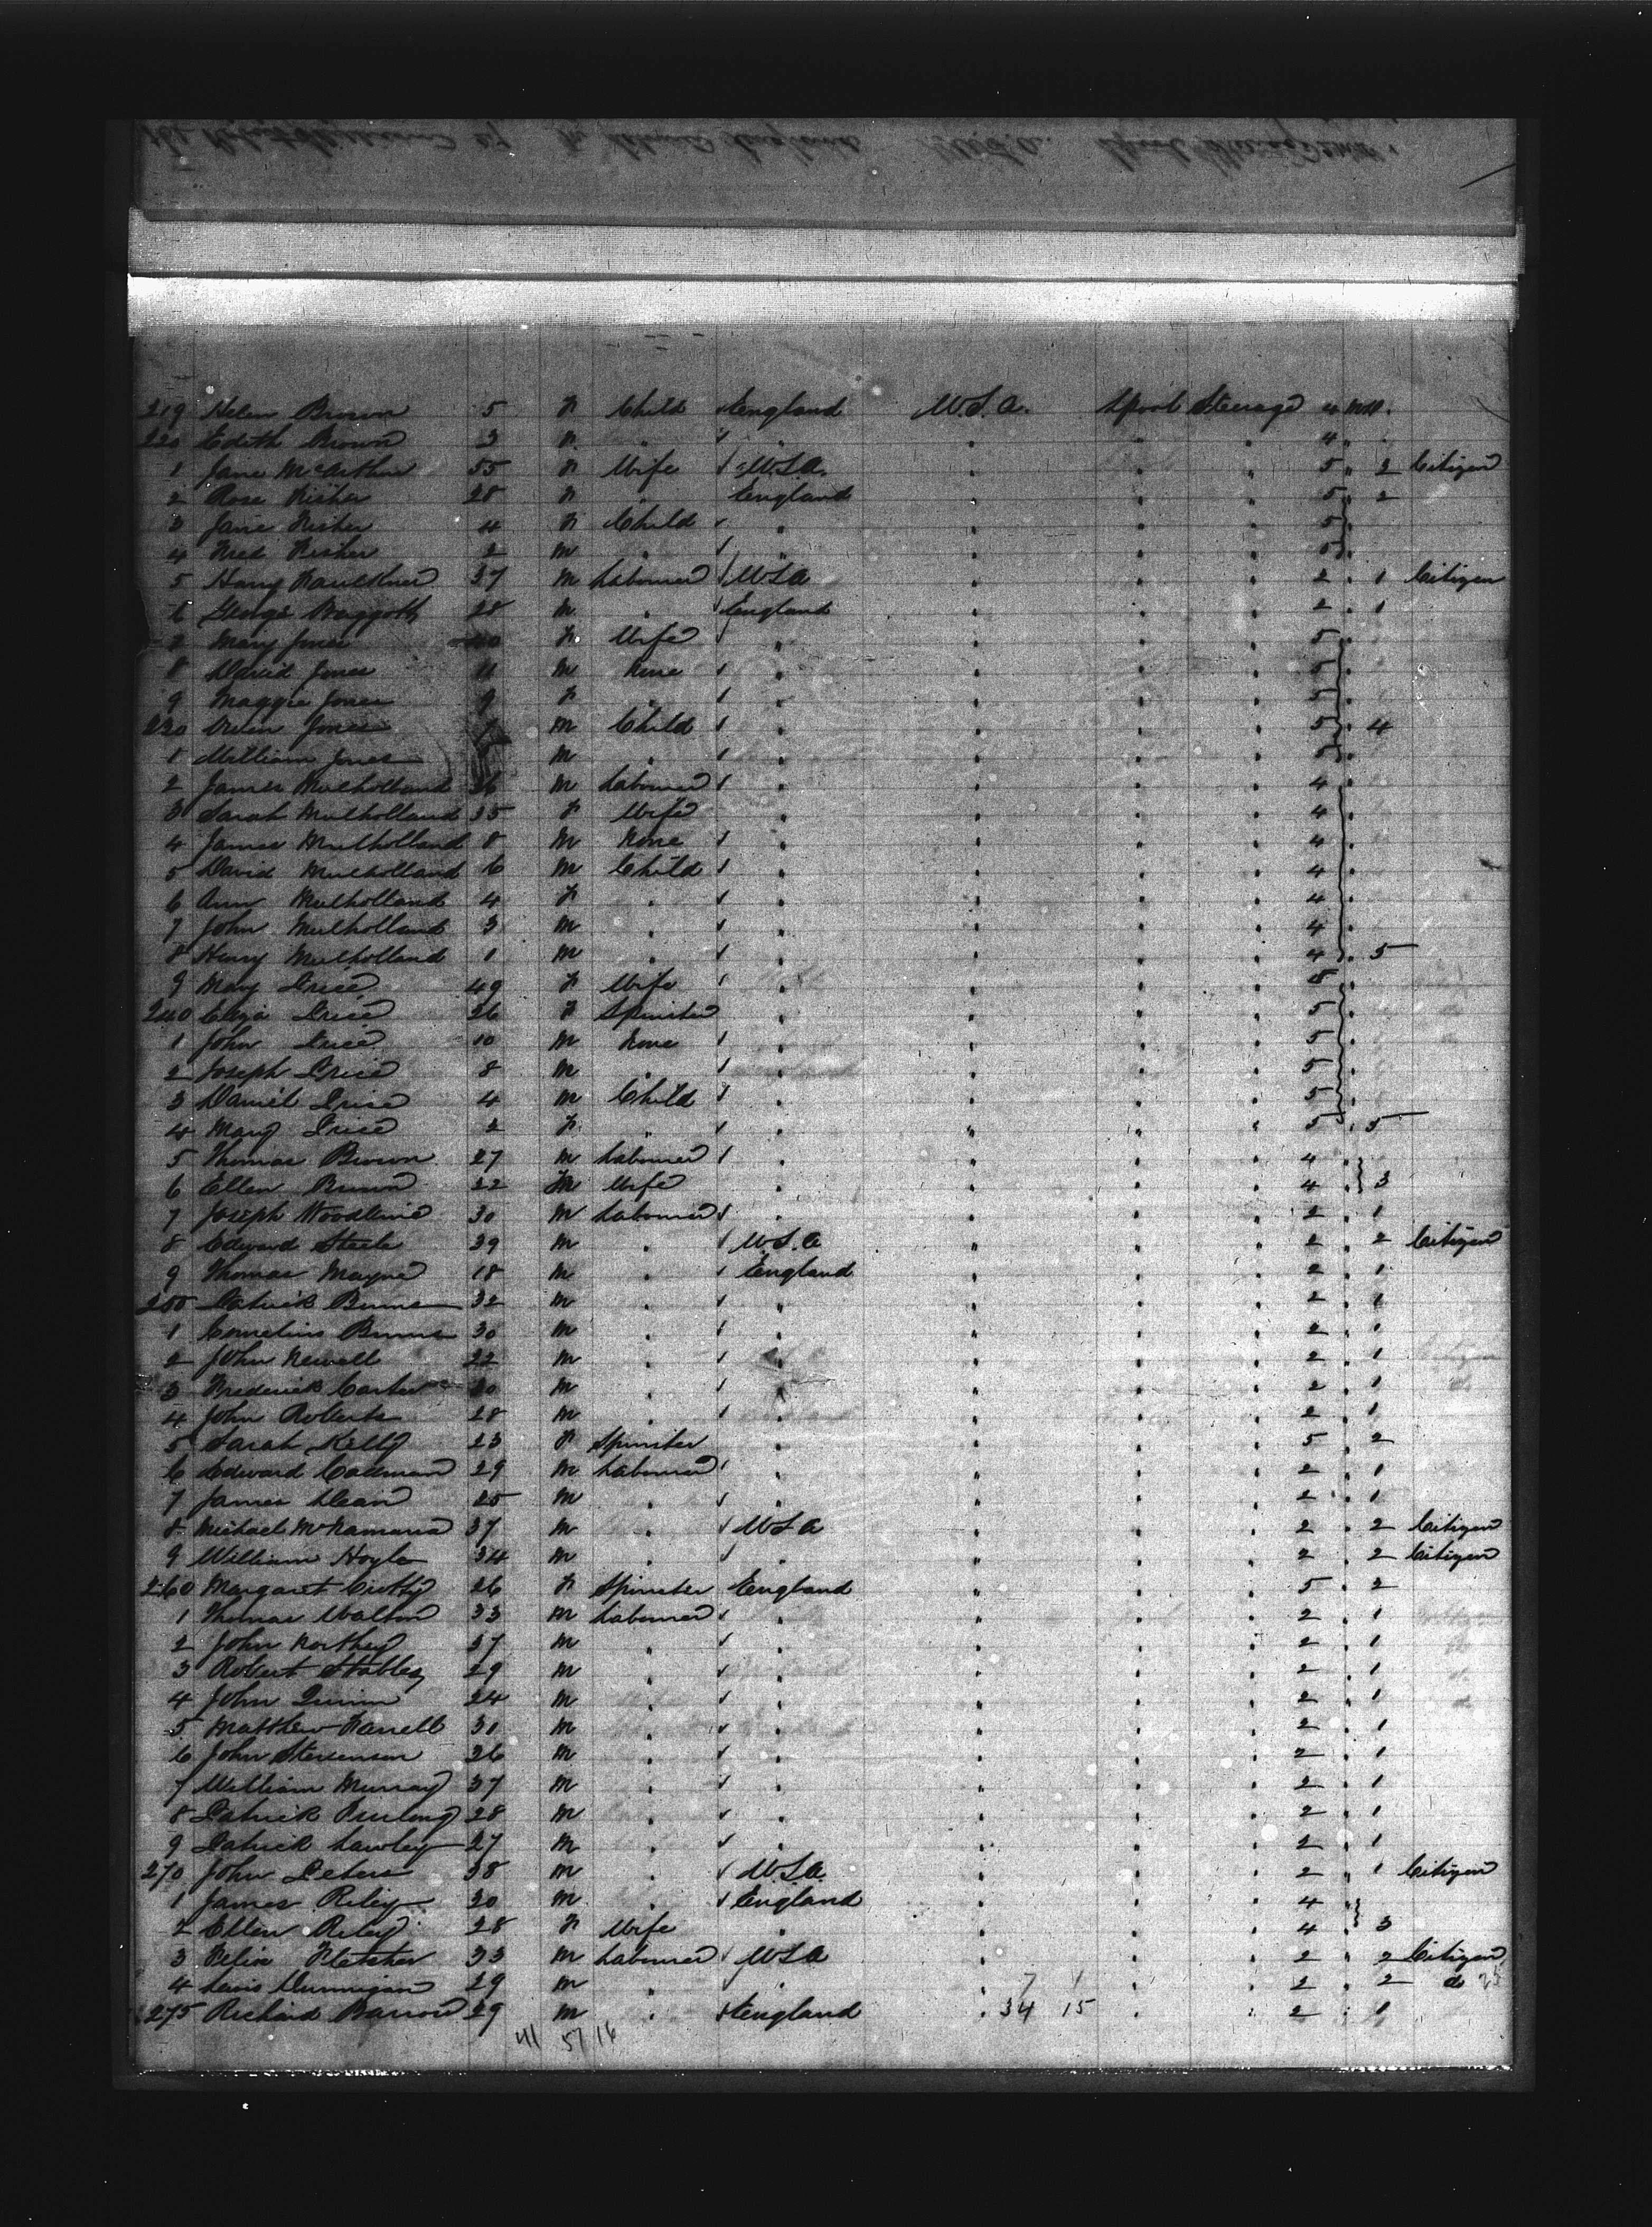 219 Helen Brown 5 F Child England U.S.A. L'pool Steerage 4
220 Edith Brown 3 F " " " " " 4
1 Jane McArthur 55 F Wife U.S.A. " " " 5 " 2 Citizen
2 Rose Fisher 28 F " England " " " 5 " 2
3 Jane Fisher 4 F Child " " " " 5
4 Fred Fisher 2 M " " " " " 5
5 Harry Faulkner 37 M Labourer U.S.A " " " 2 " 1 Citizen
6 George 28 M " England " " " 2 " 1
7 Mary Jones 40 F Wife " " " " 5
8 David Jones 11 M None " " " " 5 "
9 Maggie Jones 9 F " " " " " 5 "
230 Jones M Child " " " " 5 " 4
1 William Jones M " " " " " 5 "
2 James Mulholland 36 M Labourer " " " " 4 "
3 Sarah Mulholland 35 F Wife " " " " 4 "
4 James Mulholland 8 M None " " " " 4 "
5 David Mulholland 6 M Child " " " " 4 "
6 Ann Mulholland 4 F " " " " " 4 "
7 John Mulholland 3 M " " " " " 4 "
8 Henry Mulholland 1 M " " " " " 4 " 5
9 Mary Price 49 F Wife " " " " 5
240 Eliza Price 26 F Spinster " " " " 5 "
1 John Price 10 M None " " " " 5 "
2 Joseph Price 8 M " " " " " 5 "
3 Daniel Price 4 M Child " " " " 5 "
4 Mary Price 2 F " " " " " 5 " 5
5 Thomas Brown 27 M Labourer " " " " 4 "
6 Ellen Brown 22 Wife " " " " 4 " 3
7 Joseph Woodbine 30 M Labourer " " " " 2 " 1
8 Edward Steele 39 M " U.S.A " " " 2 " 2 Citizen
9 Thomas Mayne 18 M " England " " " 2 " 1
250 Patrick Burns 32 M " " " " " 2 " 1
1 Cornelius Burns 30 M " " " " " 2 " 1
2 John Newell 22 M " " " " " 2 " 1
3 Frederick Carter M " " " " " 2 " 1
4 John Roberts 28 M " " " " " 2 " 1
5 Sarah Kelly 23 F Spinster " " " " 5 " 2
6 Edward Cadman 29 M Labourer " " " " 2 " 1
7 James Dean 25 M " " " " " 2 " 1
8 Michael McNamara 37 M " U.S.A " " " 2 " 2 Citizen
9 William Hoyle 34 M " " " " " 2 " 2 Citizen
260 Margaret 26 F Spinster England " " " 5 " 2
1 Thomas Walton 33 M Labourer " " " " 2 " 1
2 John Northey 37 M " " " " " 2 " 1
3 Robert Stables 29 M " " " " " 2 " 1
4 John Quinn 24 M " " " " " 2 " 1
5 Matthew Farrell 30 M " " " " " 2 " 1
6 John Stevenson 26 M " " " " " 2 " 1
7 William Murray 37 M " " " " " 2 " 1
8 Patrick Furlong 28 M " " " " " 2 " 1
9 Patrick Lawley 27 M " " " " " 2 " 1
270 John Peters 38 M " U.S.A. " " " 2 " 1 Citizen
1 James Riley 30 M " England " " " 4 "
2 Ellen Riley 28 F Wife " " " " 4 " 3
3 Felix Fletcher 33 M Labourer U.S.A " " " 2 " 2 Citizen
4 Lewis Dunnigan 29 M " " 7 1 " " 2 " 2 do
275 Richard Barrow 29 M " England " 34 15 " " 2 " 1
41 51 16